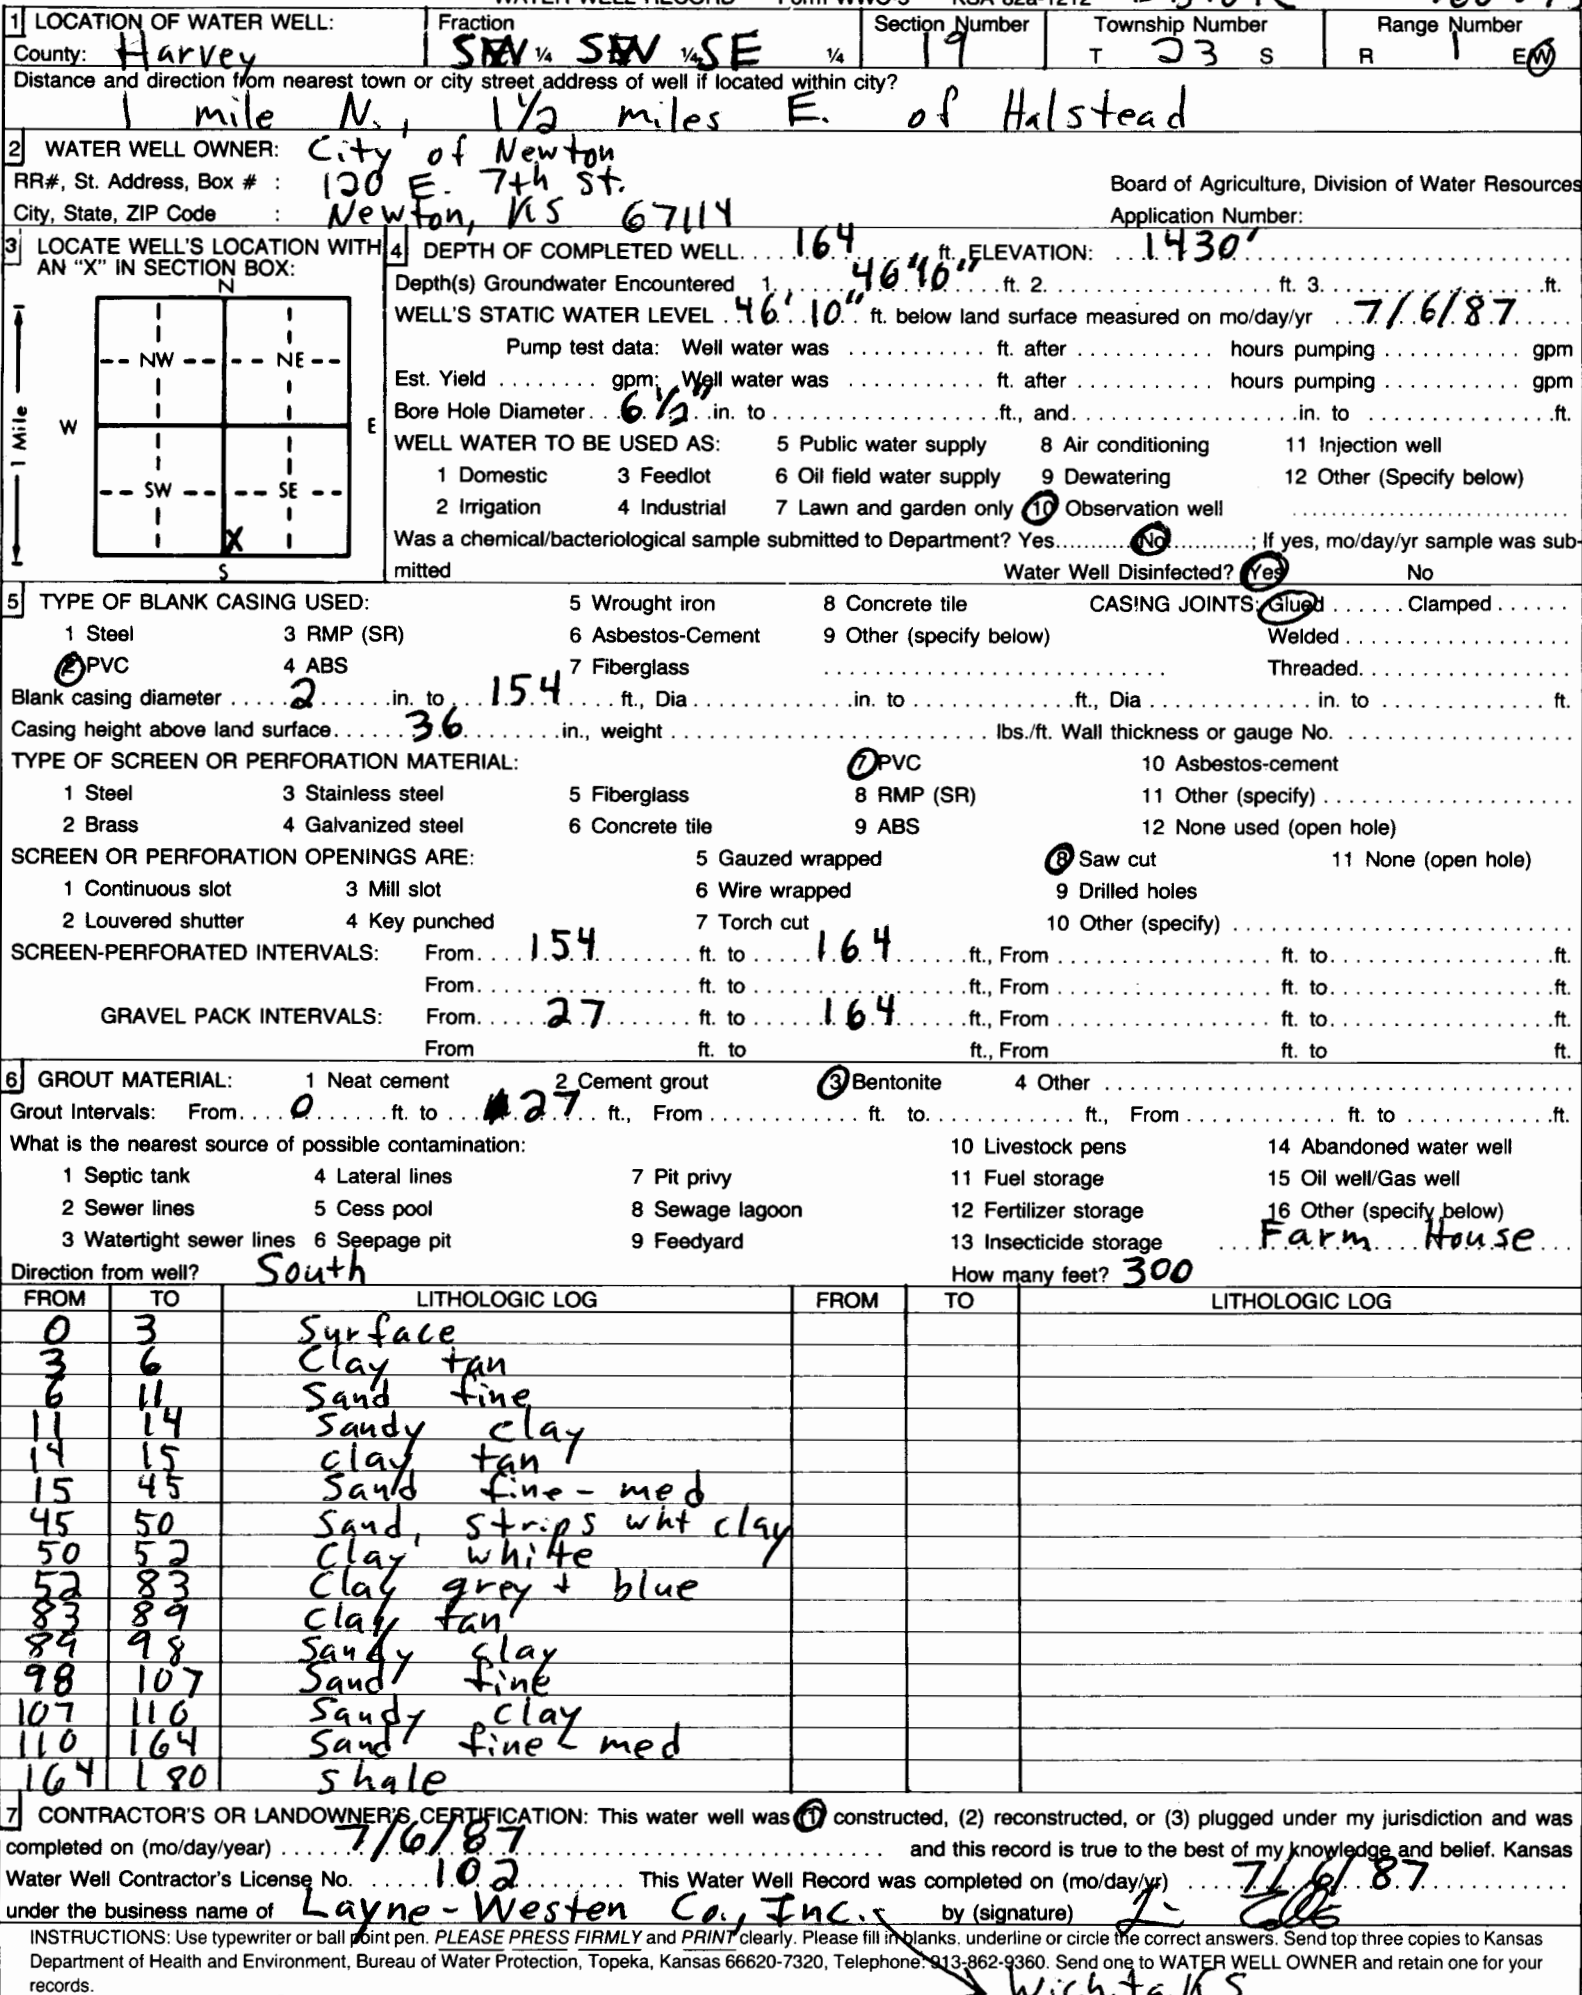 WATER WELL RECORD Form WWC-5 KSA 82a-1212
1 LOCATION OF WATER WELL: Fraction Section Number Township Number Range Number
County: Harvey SW ¼ SW ¼ SE ¼ 19 T 23 S R 1 E/W
Distance and direction from nearest town or city street address of well if located within city?
1 mile N., 1½ miles E. of Halstead
2 WATER WELL OWNER: City of Newton
RR#, St. Address, Box # : 120 E. 7th St. Board of Agriculture, Division of Water Resources
City, State, ZIP Code : Newton, KS 67114 Application Number:
3 LOCATE WELL'S LOCATION WITH AN "X" IN SECTION BOX:
N
NW NE
W E
SW SE
X
S
1 Mile
4 DEPTH OF COMPLETED WELL 164 ft. ELEVATION: 1430'
Depth(s) Groundwater Encountered 1. 46'10" ft. 2. ft. 3. ft.
WELL'S STATIC WATER LEVEL 46' 10" ft. below land surface measured on mo/day/yr 7/6/87
Pump test data: Well water was ft. after hours pumping gpm
Est. Yield gpm; Well water was ft. after hours pumping gpm
Bore Hole Diameter 6 ½" in. to ft., and in. to ft.
WELL WATER TO BE USED AS: 5 Public water supply 8 Air conditioning 11 Injection well
1 Domestic 3 Feedlot 6 Oil field water supply 9 Dewatering 12 Other (Specify below)
2 Irrigation 4 Industrial 7 Lawn and garden only 10 Observation well
Was a chemical/bacteriological sample submitted to Department? Yes No ; If yes, mo/day/yr sample was sub-
mitted Water Well Disinfected? Yes No
5 TYPE OF BLANK CASING USED: 5 Wrought iron 8 Concrete tile CASING JOINTS: Glued Clamped
1 Steel 3 RMP (SR) 6 Asbestos-Cement 9 Other (specify below) Welded
2 PVC 4 ABS 7 Fiberglass Threaded
Blank casing diameter 2 in. to 154 ft., Dia in. to ft., Dia in. to ft.
Casing height above land surface 36 in., weight lbs./ft. Wall thickness or gauge No.
TYPE OF SCREEN OR PERFORATION MATERIAL: 7 PVC 10 Asbestos-cement
1 Steel 3 Stainless steel 5 Fiberglass 8 RMP (SR) 11 Other (specify)
2 Brass 4 Galvanized steel 6 Concrete tile 9 ABS 12 None used (open hole)
SCREEN OR PERFORATION OPENINGS ARE: 5 Gauzed wrapped 8 Saw cut 11 None (open hole)
1 Continuous slot 3 Mill slot 6 Wire wrapped 9 Drilled holes
2 Louvered shutter 4 Key punched 7 Torch cut 10 Other (specify)
SCREEN-PERFORATED INTERVALS: From 154 ft. to 164 ft., From ft. to ft.
From ft. to ft., From ft. to ft.
GRAVEL PACK INTERVALS: From 27 ft. to 164 ft., From ft. to ft.
From ft. to ft., From ft. to ft.
6 GROUT MATERIAL: 1 Neat cement 2 Cement grout 3 Bentonite 4 Other
Grout Intervals: From 0 ft. to 27 ft., From ft. to ft., From ft. to ft.
What is the nearest source of possible contamination: 10 Livestock pens 14 Abandoned water well
1 Septic tank 4 Lateral lines 7 Pit privy 11 Fuel storage 15 Oil well/Gas well
2 Sewer lines 5 Cess pool 8 Sewage lagoon 12 Fertilizer storage 16 Other (specify below)
3 Watertight sewer lines 6 Seepage pit 9 Feedyard 13 Insecticide storage Farm House
Direction from well? South How many feet? 300
FROM TO LITHOLOGIC LOG FROM TO LITHOLOGIC LOG
0 3 Surface
3 6 Clay tan
6 11 Sand fine
11 14 Sandy clay
14 15 clay tan
15 45 Sand fine - med
45 50 Sand, strips wht clay
50 52 Clay white
52 83 Clay grey + blue
83 89 Clay tan
89 98 Sandy clay
98 107 Sand fine
107 110 Sandy clay
110 164 Sand fine - med
164 180 shale
7 CONTRACTOR'S OR LANDOWNER'S CERTIFICATION: This water well was (1) constructed, (2) reconstructed, or (3) plugged under my jurisdiction and was
completed on (mo/day/year) 7/6/87 and this record is true to the best of my knowledge and belief. Kansas
Water Well Contractor's License No. 102 This Water Well Record was completed on (mo/day/yr) 7/6/87
under the business name of Layne-Westen Co., Inc. by (signature)
INSTRUCTIONS: Use typewriter or ball point pen. PLEASE PRESS FIRMLY and PRINT clearly. Please fill in blanks, underline or circle the correct answers. Send top three copies to Kansas
Department of Health and Environment, Bureau of Water Protection, Topeka, Kansas 66620-7320, Telephone: 913-862-9360. Send one to WATER WELL OWNER and retain one for your
records. Wichita KS